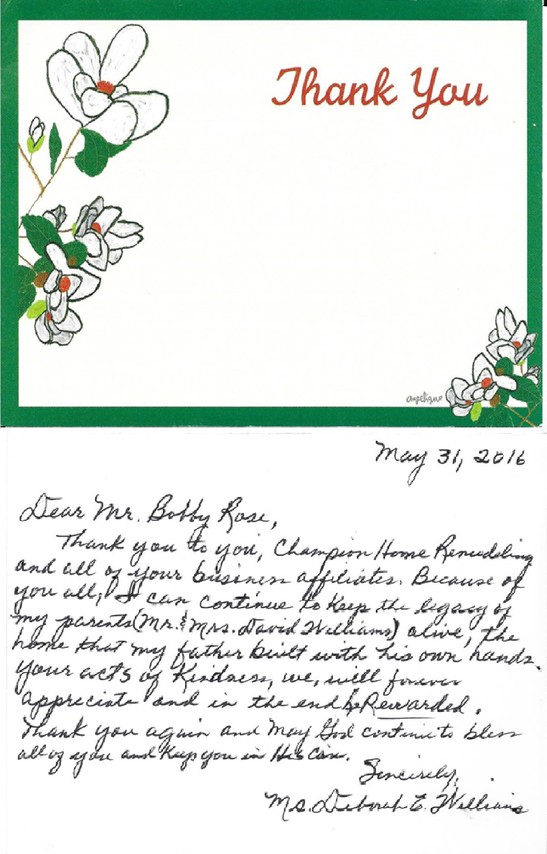 Thank You
angelique
May 31, 2016
Dear Mr. Bobby Rose,
Thank you to you, Champion Home Remodeling
and all of your business affiliates. Because of
you all, I can continue to keep the legacy of
my parents (Mr. & Mrs. David Williams) alive, the
home that my father built with his own hands.
Your acts of Kindness, we, will forever
appreciate and in the end be Rewarded.
Thank you again and May God continue to bless
all of you and Keep you in His Care.
Sincerely,
Ms. Deborah E. Williams